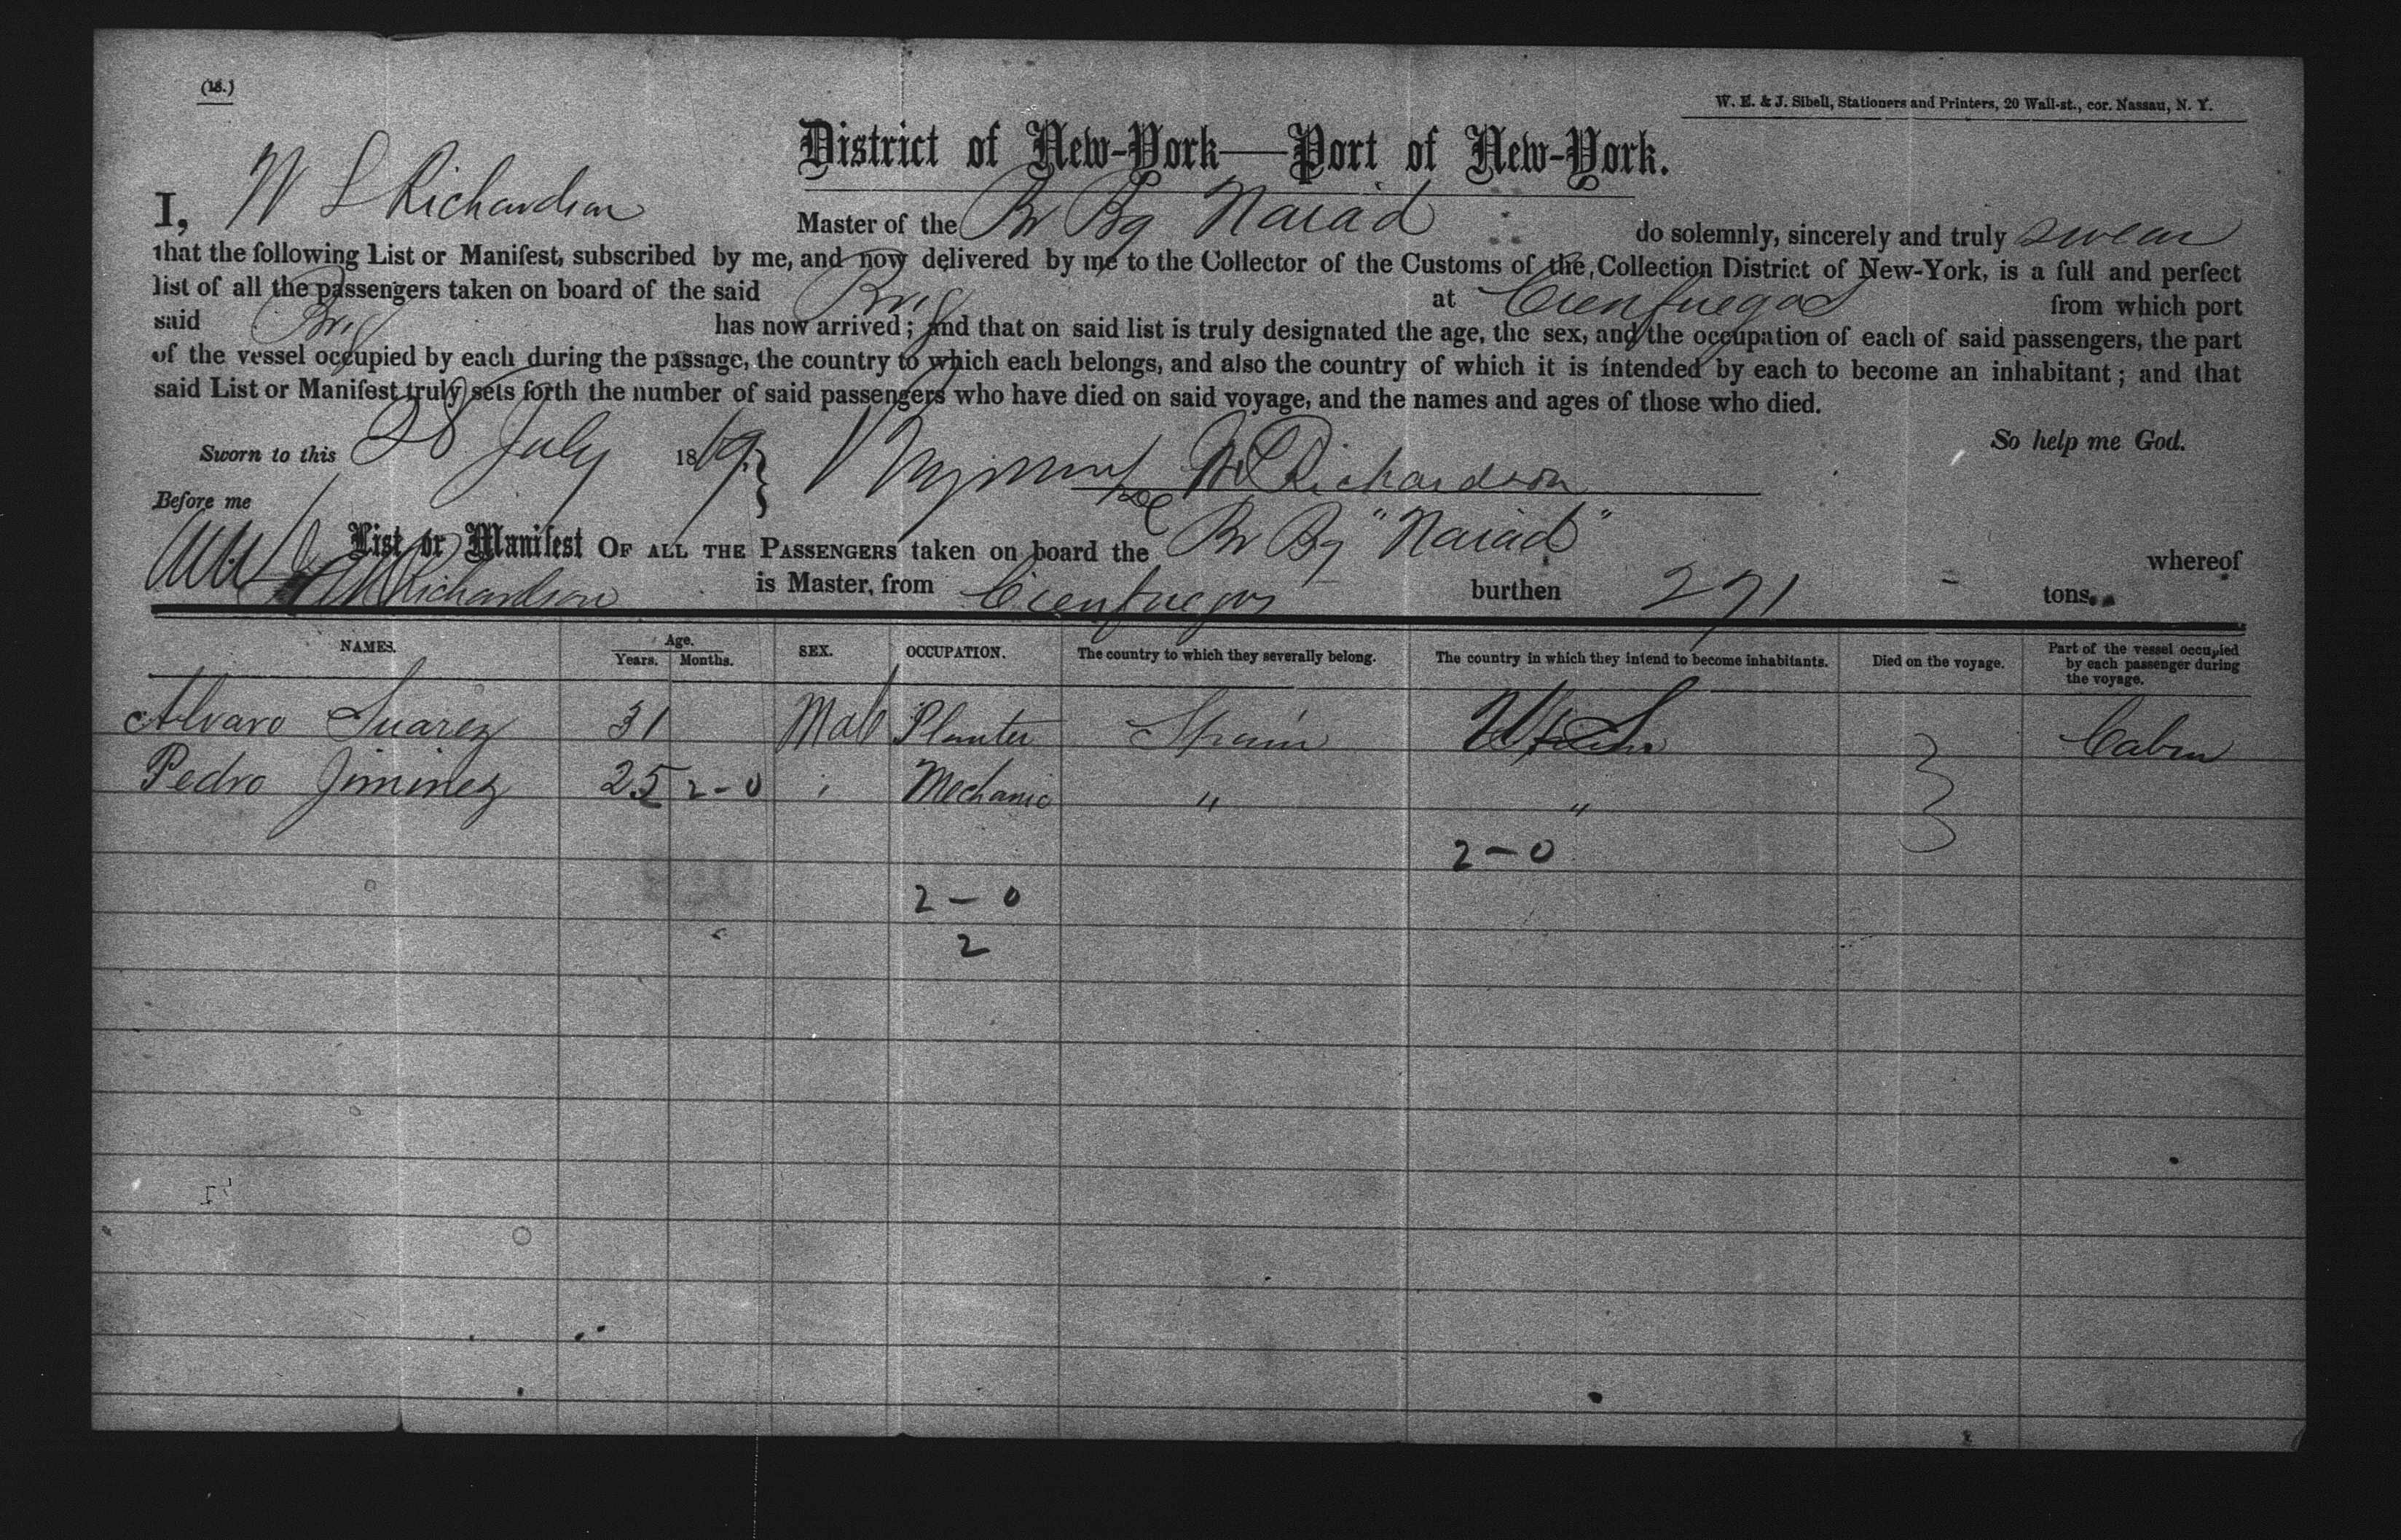 (18.)
W. E. & J. Sibell, Stationers and Printers, 20 Wall-st., cor. Nassau, N. Y.
District of New-York—Port of New-York.
I, W S Richardson Master of the Br Bg Naiad do solemnly, sincerely and truly swear
that the following List or Manifest, subscribed by me, and now delivered by me to the Collector of the Customs of the Collection District of New-York, is a full and perfect
list of all the passengers taken on board of the said Brig at Cienfuegos from which port
said Brig has now arrived; and that on said list is truly designated the age, the sex, and the occupation of each of said passengers, the part
of the vessel occupied by each during the passage, the country to which each belongs, and also the country of which it is intended by each to become an inhabitant; and that
said List or Manifest truly sets forth the number of said passengers who have died on said voyage, and the names and ages of those who died.
So help me God.
Sworn to this 28 July 1869 W S Richardson
Before me
List or Manifest OF ALL THE PASSENGERS taken on board the Br Bg "Naiad" whereof
Richardson is Master, from Cienfuegos burthen 271 tons.
NAMES. Age. Years. Months. SEX. OCCUPATION. The country to which they severally belong. The country in which they intend to become inhabitants. Died on the voyage. Part of the vessel occupied by each passenger during the voyage.
Alvaro Suarez 31 Male Planter Spain U S Cabin
Pedro Jiminez 25 2-0 " Mechanic " "
2-0
2-0
2